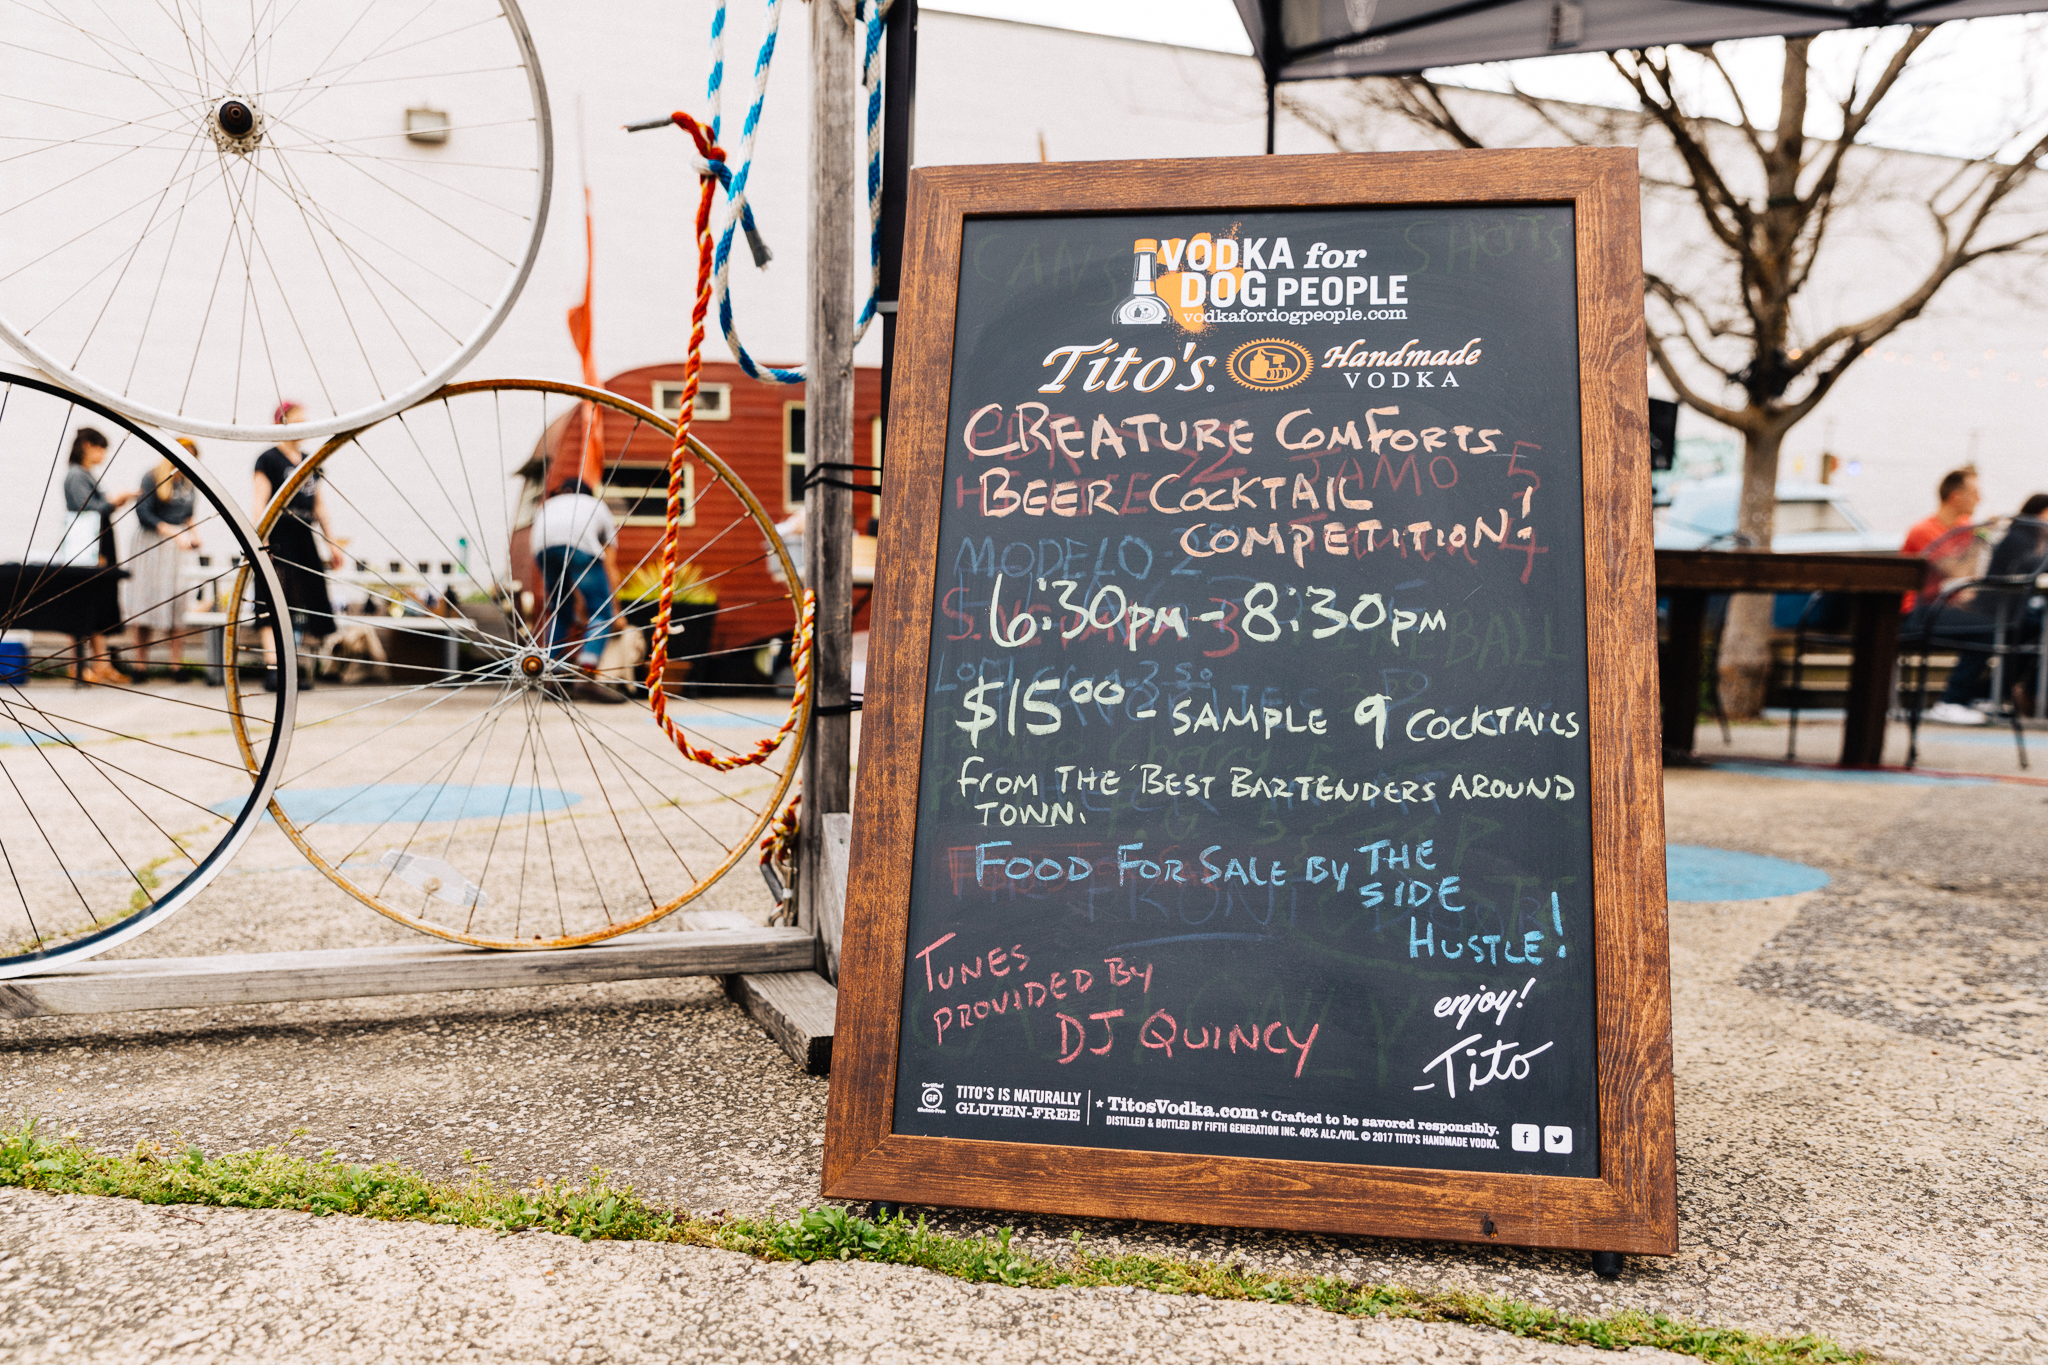 VODKA for
DOG PEOPLE
vodkafordogpeople.com
Tito's® Handmade
VODKA
CREATURE COMFORTS
BEER COCKTAIL
COMPETITION!
6:30pm - 8:30pm
$15.00 - SAMPLE 9 COCKTAILS
FROM THE BEST BARTENDERS AROUND
TOWN.
FOOD FOR SALE BY THE
SIDE
HUSTLE!
TUNES
PROVIDED BY
DJ QUINCY
enjoy!
-Tito
Certified
GF
Gluten-Free
TITO'S IS NATURALLY
GLUTEN-FREE
★ TitosVodka.com ★ Crafted to be savored responsibly.
DISTILLED & BOTTLED BY FIFTH GENERATION INC. 40% ALC./VOL. © 2017 TITO'S HANDMADE VODKA.
f
CANS
SHOTS
JAMO 5
MODELO - 2